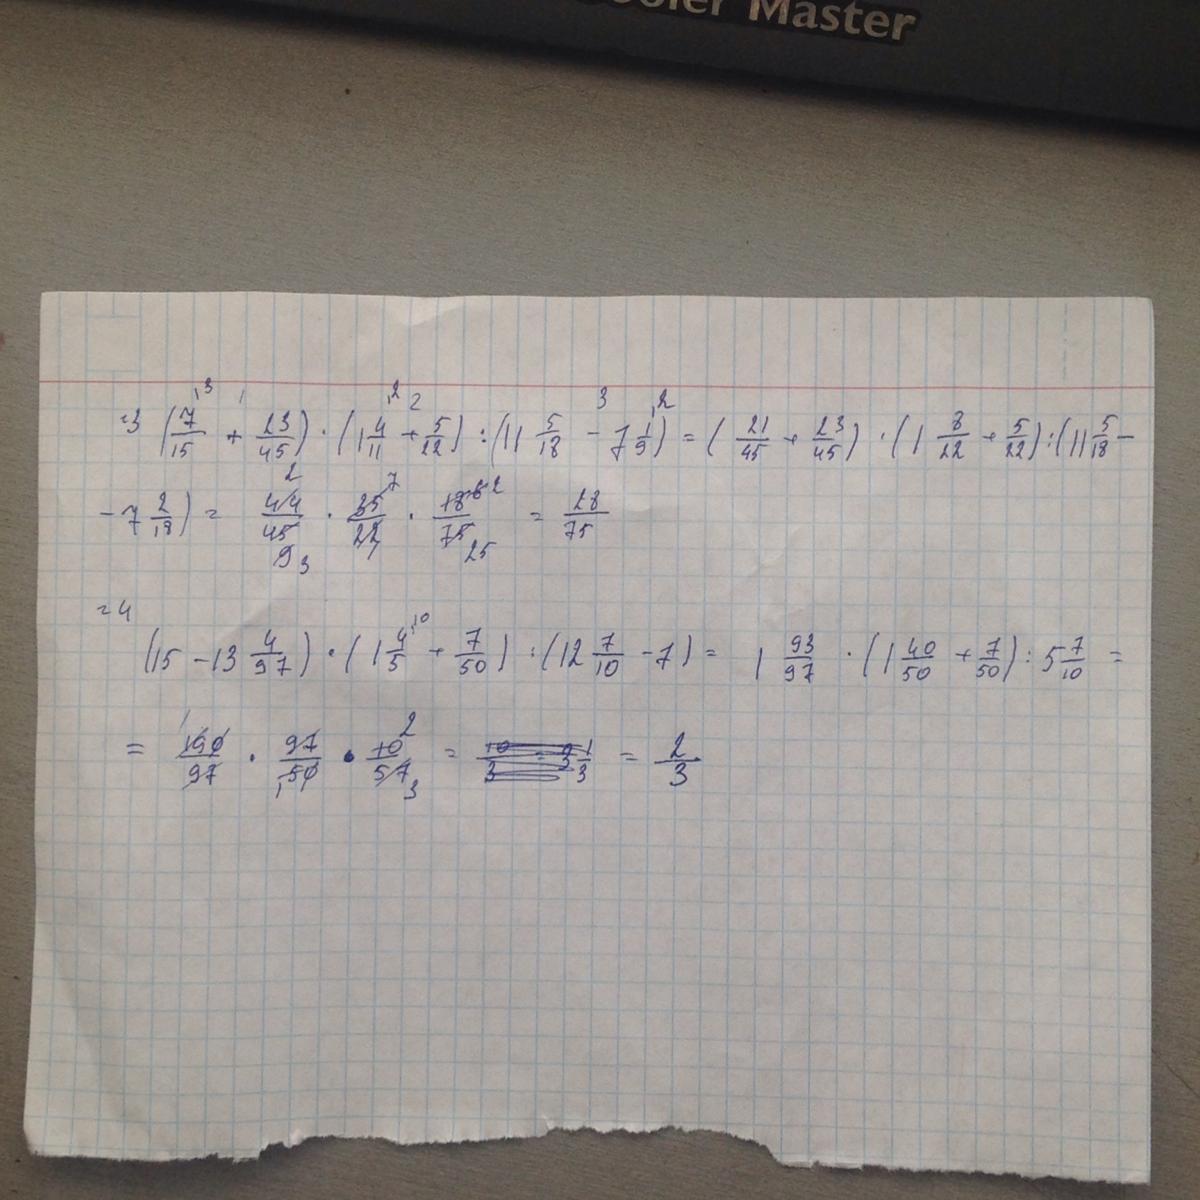 Cooler Master
=3 (7/15 + 23/45) · (1 4/11 + 5/22) : (11 5/18 - 7 1/9) = (21/45 + 23/45) · (1 8/22 + 5/22) : (11 5/18 -
- 7 2/18) = 44/45 · 35/22 · 18/75 = 28/75
=4
(15 - 13 4/97) · (1 4/5 + 7/50) : (12 7/10 - 7) = 1 93/97 · (1 40/50 + 7/50) : 5 7/10 =
= 190/97 · 97/50 · 10/57 = 2/3